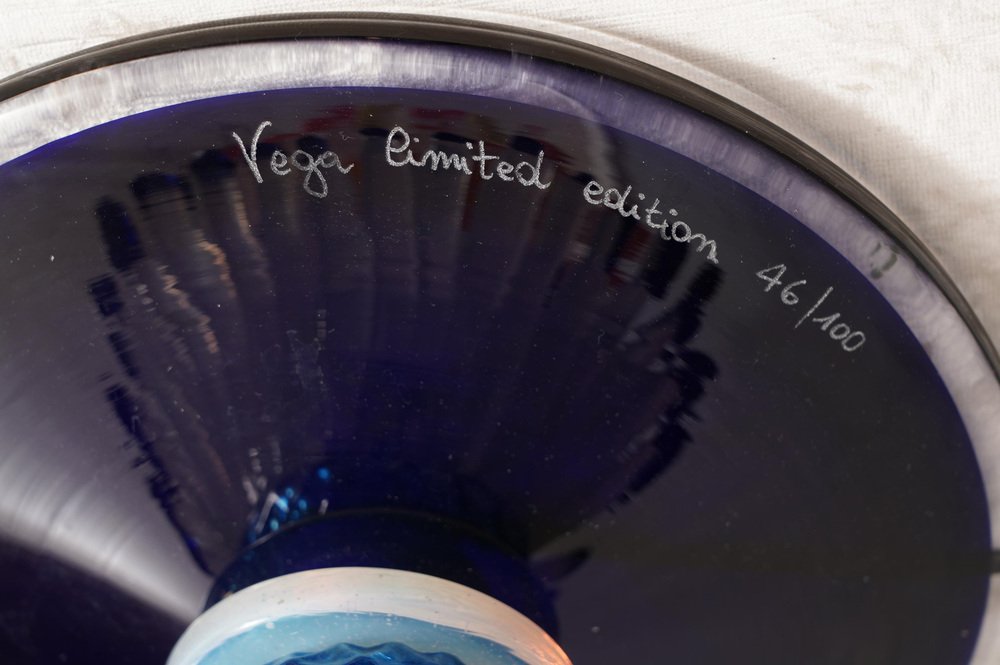 Vega limited edition 46/100